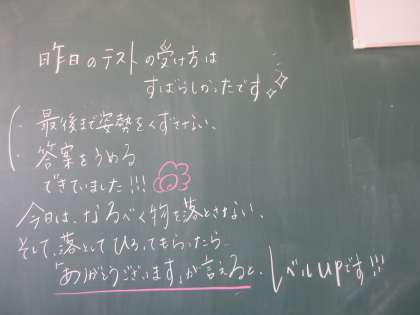 昨日のテストの受け方は
すばらしかったです
・最後まで姿勢をくずさない、
・答案をうめる
できていました!!!
今日は、なるべく物を落とさない、
そして、落としてひろってもらったら
「ありがとうございます」が言えると、レベルupです!!!